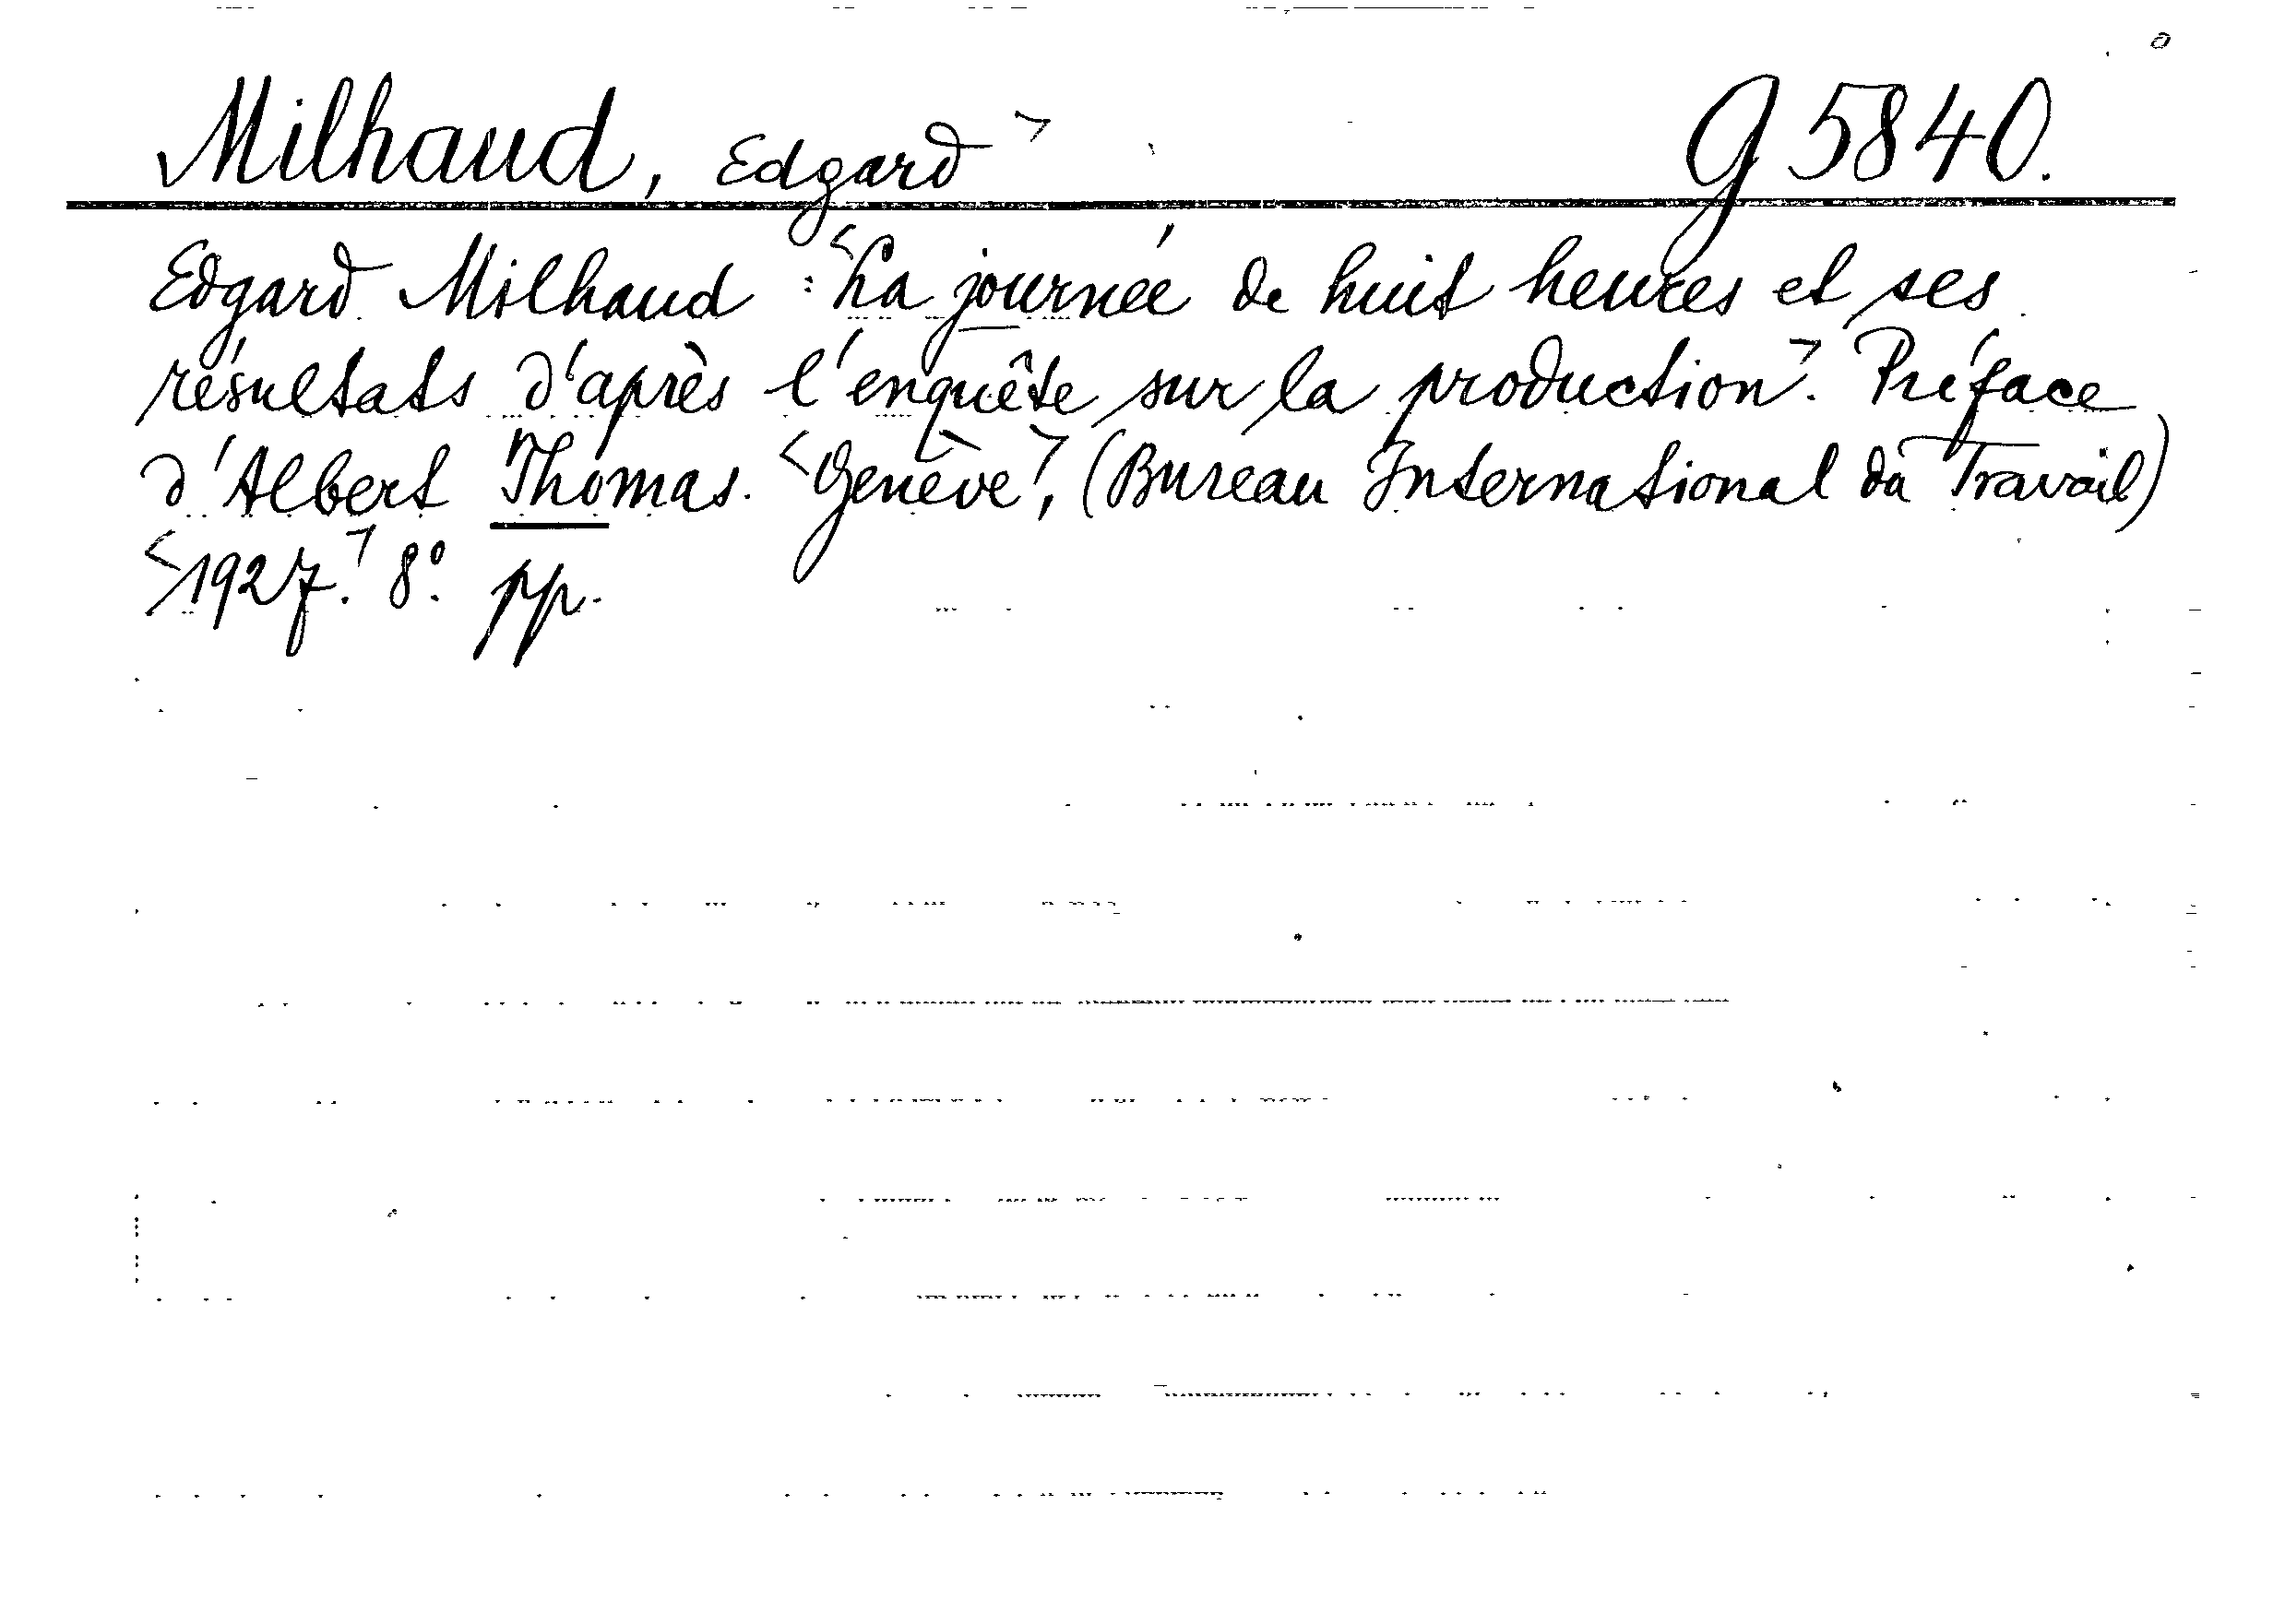 Milhaud, Edgard> G 5840.
Edgard Milhaud : <La journée de huit heures et ses
résultats d'après l'enquête sur la production>. Préface
d'Albert Thomas. <Genève>, (Bureau International du Travail)
<1927.> 8°. pp.